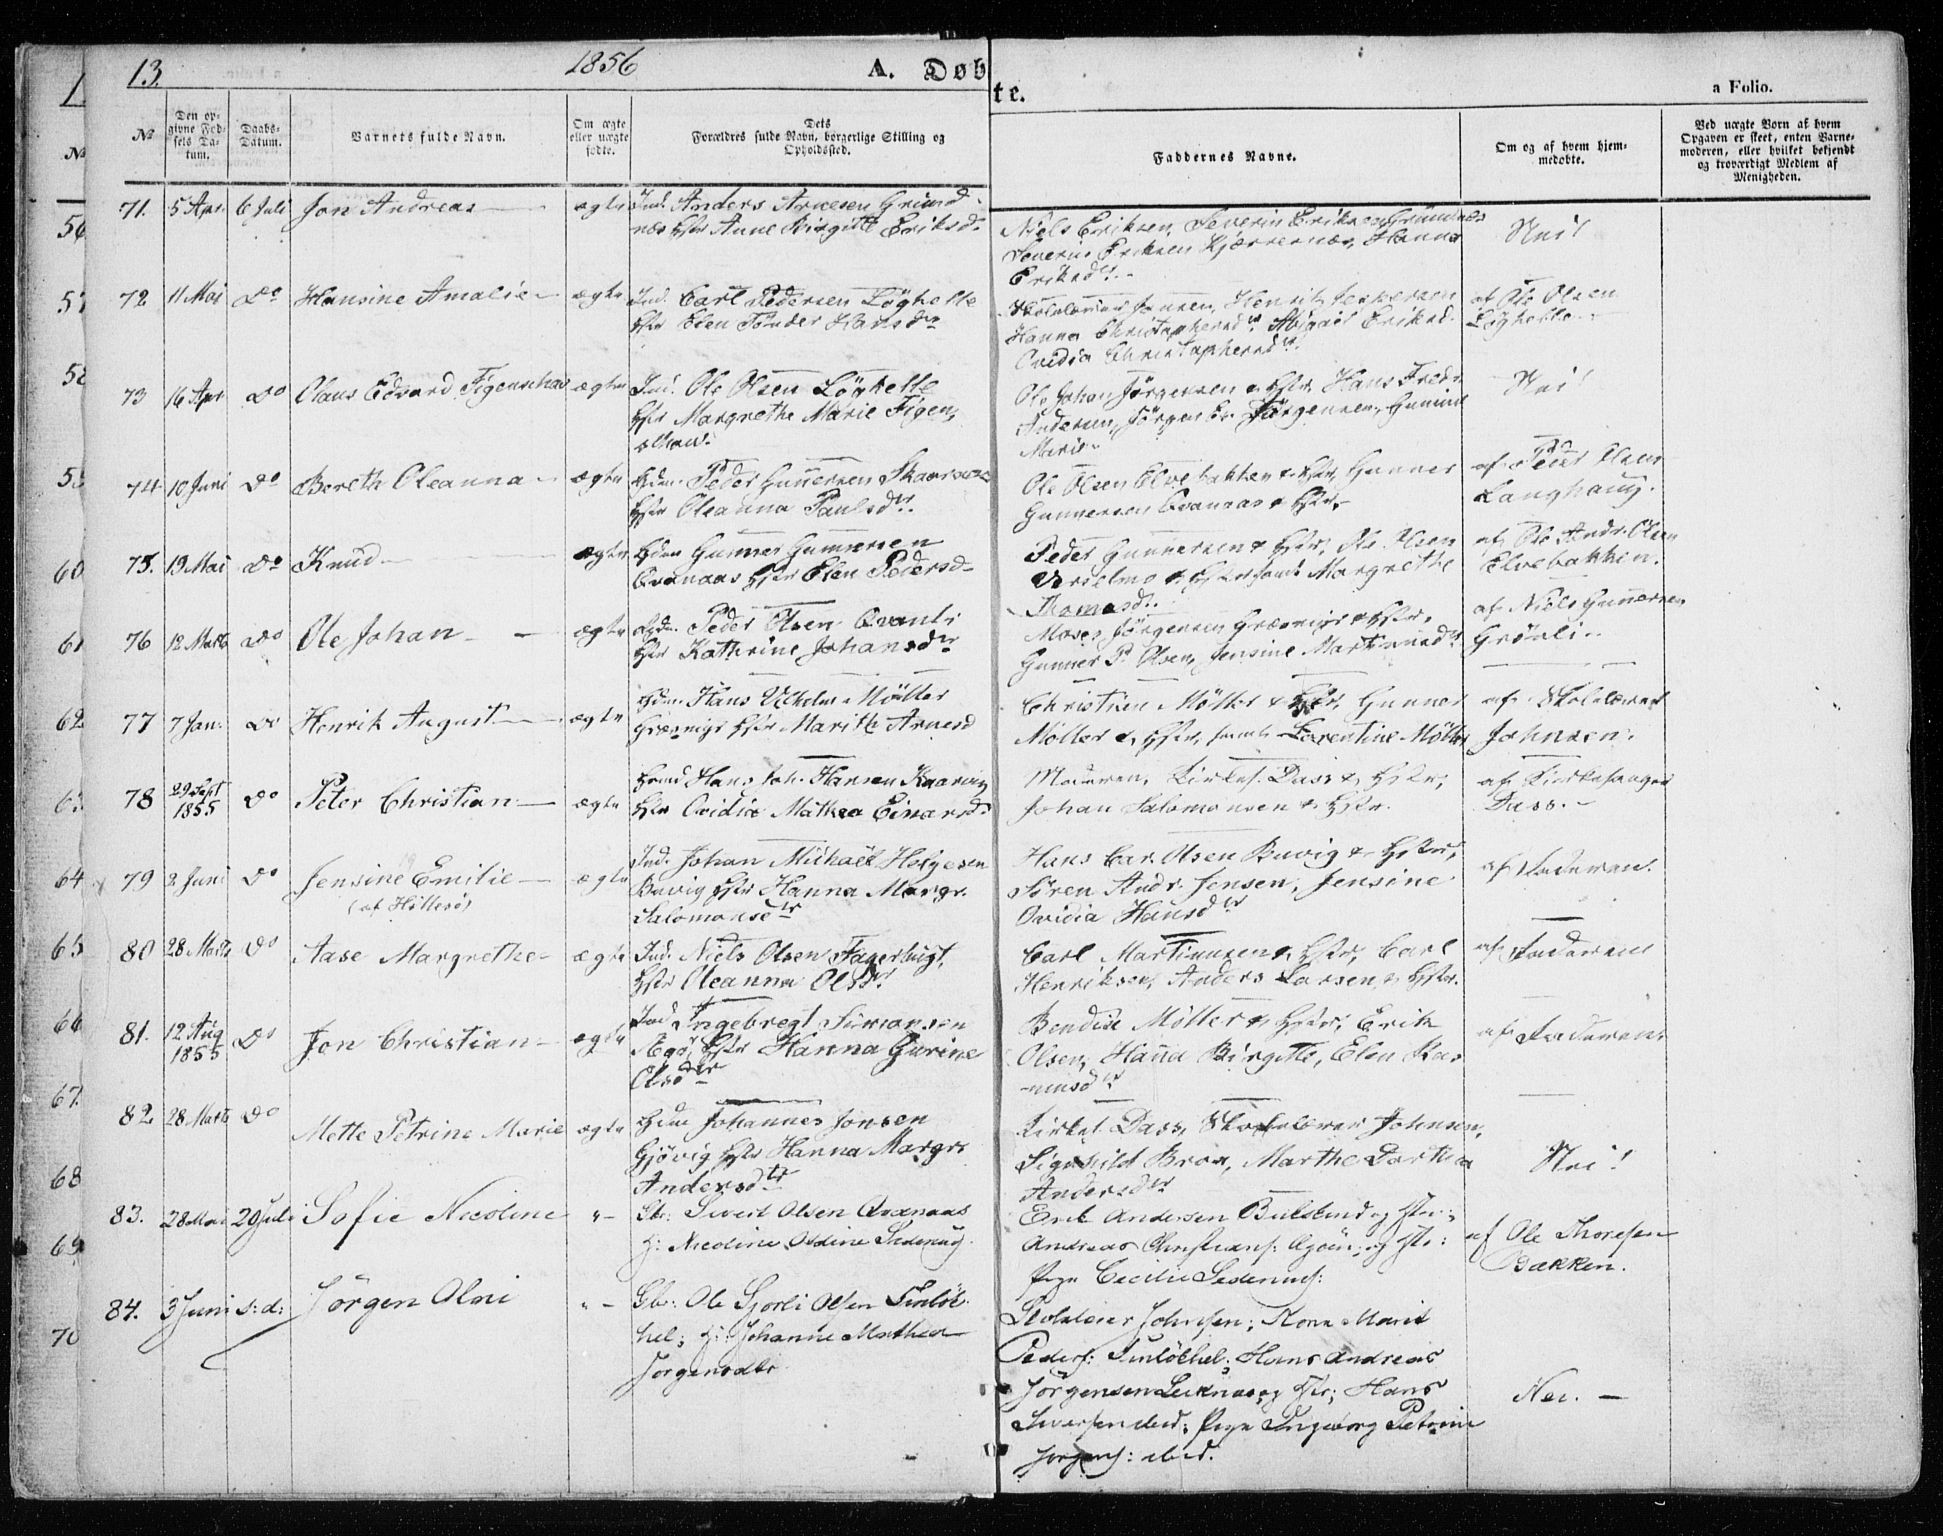 13.
1856
A. Døb
te.
a Folio.
No
Den op-
givne Fød-
sels Da-
tum.
Daabs-
Datum.
Varnets fulde Navn.
Om ægte
eller uægte
fødte.
Dets
Forældres fulde Navn, borgerlige Stilling og
Opholdssted.
Faddernes Navne.
Om og af hvem hjem-
medøbte.
Ved uægte Børn af hvem
Opgaven er skeet, enten Barne-
moderen, eller hvilket bekjendt
og troværdigt Medlem af
Menigheden.
71. 5 Apr. 6 Juli Jon Andreas ægte Ind. Anders Arnesen Grund-
næs Hstr Anne Birgitte Eriksd.
Niels Eriksen, Severin Eriksen Grundnæs
Severin Eriksen Kjærresnæs, Hanna
Eriksdr.
Nei!
72 11 Mai Do Hansine Amalie ægte Ind. Carl Pedersen Løghelle
Hstr Elen Tønder Hansdr
Skolelærer Jansen, Henrik Jespersen
Hanna Christophersdr. Abigael Eriksd.
Ovedia Christophersdr.
af Ole Olsen
Løghelle
73 16 Apr Do Claus Edvard Figenschau ægte Ind. Ole Olsen Løghelle
Hstr Margrethe Marie Figen,
schau.
Ole Johan Jørgensen & Hstr, Hans Fredr
Andersen, Jørgen Er. Jørgensen, Gunild
Marie
Nei!
74 10 Juni Do Bereth Oleanna ægte Hdm. Peder Gunnersen Skaarvæs
Hstr Oleanna Paulsdr.
Ole Olsen Elvebakken & Hstr, Gunner
Gunnersen Qvannaas & Hstr
af Peder Olsen
Langhaug.
75. 19 Mai Do Knud ægte Hdm Gunner Gunnersen
Qvanaas Hstr Elen Pedersd
Peder Gunnersen & Hstr, Ole Olsen
& Hstr samt Margrethe
Thomasd.
af Ole Andr. Olsen
Elvebakken.
76 12 Marts Do Ole Johan ægte Peder Olsen Qvanli
Hstr Kathrine Johansdr
Moses Jørgensen Græsmyr & Hstr,
Gunner P. Olsen, Jensine Martinusdr
af Niels Gunnersen
Grønli
77 7 Jan. Do Henrik August ægte Hdm. Hans Vilhelm Møller
Græsmyr Hstr Marith Arnesd
Christien Møller & Hstr, Gunner
Møller & Hstr, samt Lorentine Møller
af Skolelærer
Johnsen.
78 29 Sept 1855 Do Peter Christian ægte Hmd Hans Joh. Hansen Kaarvig
Hstr Ovidia Mathea Einarsd.
Moderen, Kirkes. Dass & Hstr,
Johan Salomonsen & Hstr.
af Kirkesanger
Dass.
79 2 Juni Do Jensine Emilie ægte Ind. Johan Michael Helgesen
(af Hillesø)
Buvig Hstr Hanna Margr.
Salomonsdr
Hans Car. Olsen Buvig & Hstr,
Søren Andr. Jensen, Jensine
Ovidia Hansdr
af Faderen.
80 28 Marts Do Aase Margrethe ægte Ind. Niels Olsen Fagerlugt,
Hstr Oleanna Olsdr
Carl Martinusen & Hstr, Carl
Henriksen, Anders Larsen & Hstr.
af Faderen
81. 12 Aug 1855 Do Jon Christian ægte Ind Ingebregt Simonsen
Hstr Hanna Gurine
Olsdtr
Bendix Møller & Hstr, Erik
Olsen, Hana Birgitte, Elen Ras
musdr
af Faderen
82 28 Marts Do Mette Petrine Marie ægte Hdm Johannes Jonsen
Gjøvig Hstr Hanna Margr.
Andersdtr
Kirkes. Dass, Skolelærer Johnsen,
Signhild Brox, Marthe Dorthea
Andersdr
Nei!
83. 28 Mai 20 Juli Sofie Nicoline "— Gbr: Sivert Olsen Qvanaas
H: Nicoline Oldine
Erik Andersen Bulstind og Hstr;
Andreas Christians: og Hstr:
Pige Cecilie
af Ole Thoresen
Bakken.
84. 3 Juni s:d: Jørgen Olai "— Gbr: Ole Sjorli Olsen
H: Johanne Mathea
Jørgensdtr.
Skolelærer Johnsen; Kone Marit
Peders: Hans Andreas
Jørgensen og Hstr; Hans
Sivertsen ibid; Pige Ingeborg Petrine
Jørgens: ibid.
Nei. —
No
56
57
58
59
60
61
62
63
64
65
66
67.
68
69
70